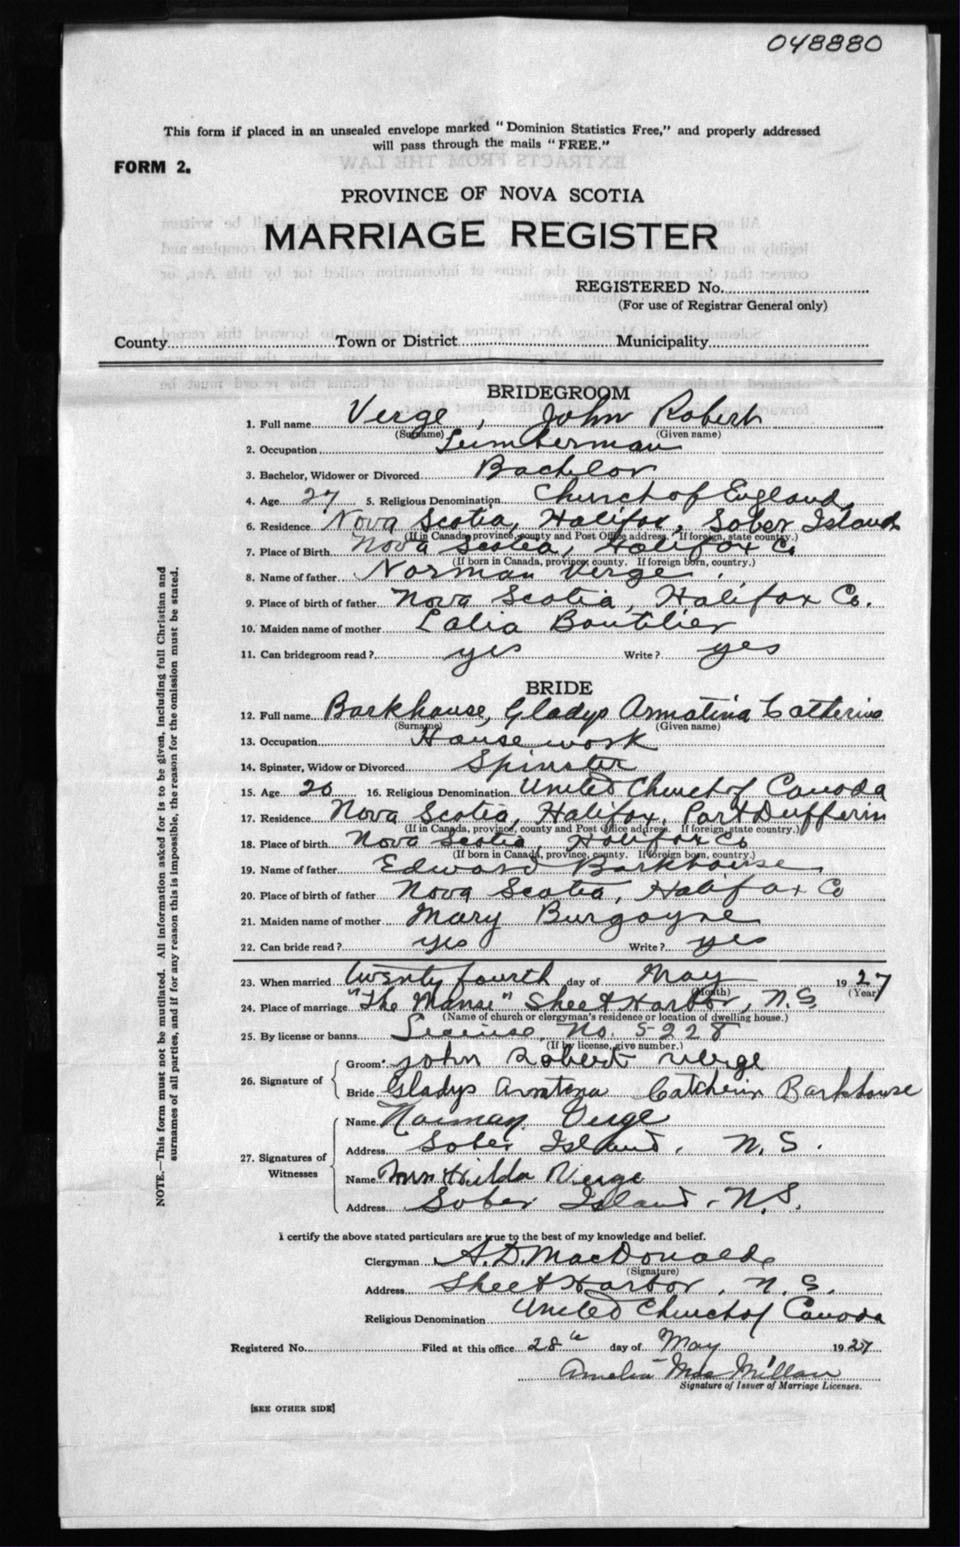 048880
This form if placed in an unsealed envelope marked "Dominion Statistics Free," and properly addressed
will pass through the mails "FREE."
FORM 2.
EXTRACTS FROM THE LAW
PROVINCE OF NOVA SCOTIA
MARRIAGE REGISTER
REGISTERED No.
(For use of Registrar General only)
County Town or District Municipality
BRIDEGROOM
1. Full name Verge, John Robert
(Surname) (Given name)
2. Occupation Lumberman
3. Bachelor, Widower or Divorced Bachelor
4. Age 27 5. Religious Denomination Church of England
6. Residence Nova Scotia, Halifax, Sober Island
(If in Canada, province, county and Post Office address. If foreign, state country.)
7. Place of Birth Nova Scotia, Halifax Co
(If born in Canada, province, county. If foreign born, country.)
8. Name of father Norman Verge
9. Place of birth of father Nova Scotia, Halifax Co.
10. Maiden name of mother Lalia Boutilier
11. Can bridegroom read? yes Write? yes
BRIDE
12. Full name Barkhouse, Gladys Armatina Catherine
(Surname) (Given name)
13. Occupation Housework
14. Spinster, Widow or Divorced Spinster
15. Age 20 16. Religious Denomination United Church of Canada
17. Residence Nova Scotia, Halifax, Port Dufferin
(If in Canada, province, county and Post Office address. If foreign, state country.)
18. Place of birth Nova Scotia, Halifax Co
(If born in Canada, province, county. If foreign born, country.)
19. Name of father Edward Barkhouse
20. Place of birth of father Nova Scotia, Halifax Co
21. Maiden name of mother Mary Burgoyne
22. Can bride read? yes Write? yes
23. When married twenty fourth day of May 1927
(Month) (Year)
24. Place of marriage "The Manse" Sheet Harbor, N.S.
(Name of church or clergyman's residence or location of dwelling house.)
25. By license or banns License No. 5228
(If by license, give number.)
26. Signature of
Groom John Robert Verge
Bride Gladys Armatena Catherin Barkhouse
27. Signatures of Witnesses
Name Norman Verge
Address Sober Island, N.S.
Name Mrs Hilda Verge
Address Sober Island, N.S.
I certify the above stated particulars are true to the best of my knowledge and belief.
Clergyman A. D. MacDonald
(Signature)
Address Sheet Harbor, N.S.
Religious Denomination United Church of Canada
Registered No. Filed at this office 28th day of May 1927
Amelia MacMillan
Signature of Issuer of Marriage Licenses.
[SEE OTHER SIDE]
NOTE.—This form must not be mutilated. All information asked for is to be given, including full Christian and
surnames of all parties, and if for any reason this is impossible, the reason for the omission must be stated.